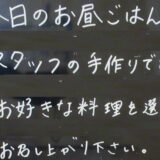 本日のお昼ごはん
スタッフの手作りで
お好きな料理を選
お召し上がり下さい。